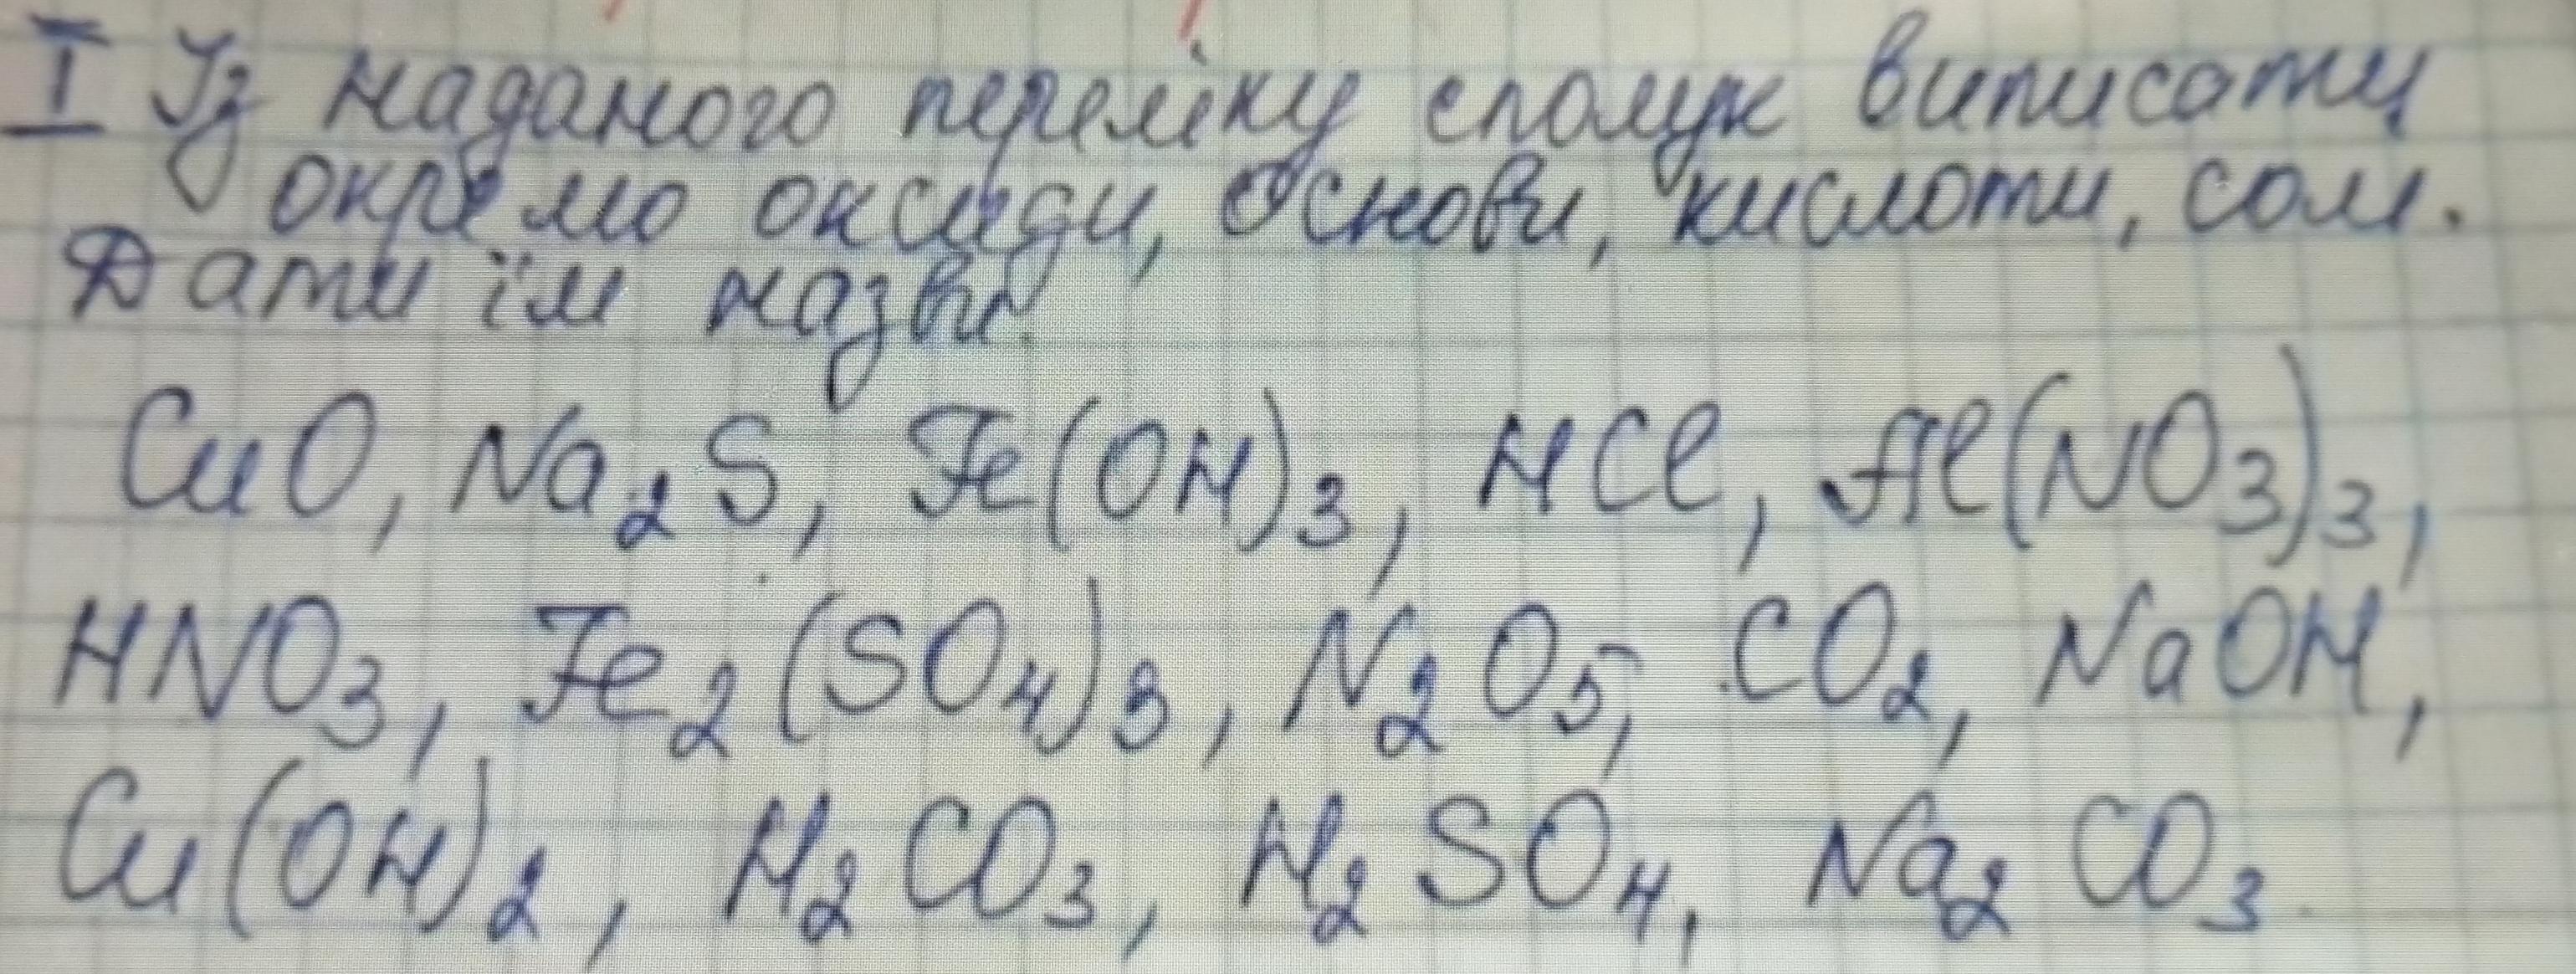 I Із наданого переліку сполук виписати
окремо оксиди, основи, кислоти, солі.
Дати їм назви.
CuO, Na₂S, Fe(OH)₃, HCl, Al(NO₃)₃,
HNO₃, Fe₂(SO₄)₃, N₂O₅, CO₂, NaOH,
Cu(OH)₂, H₂CO₃, H₂SO₄, Na₂CO₃.